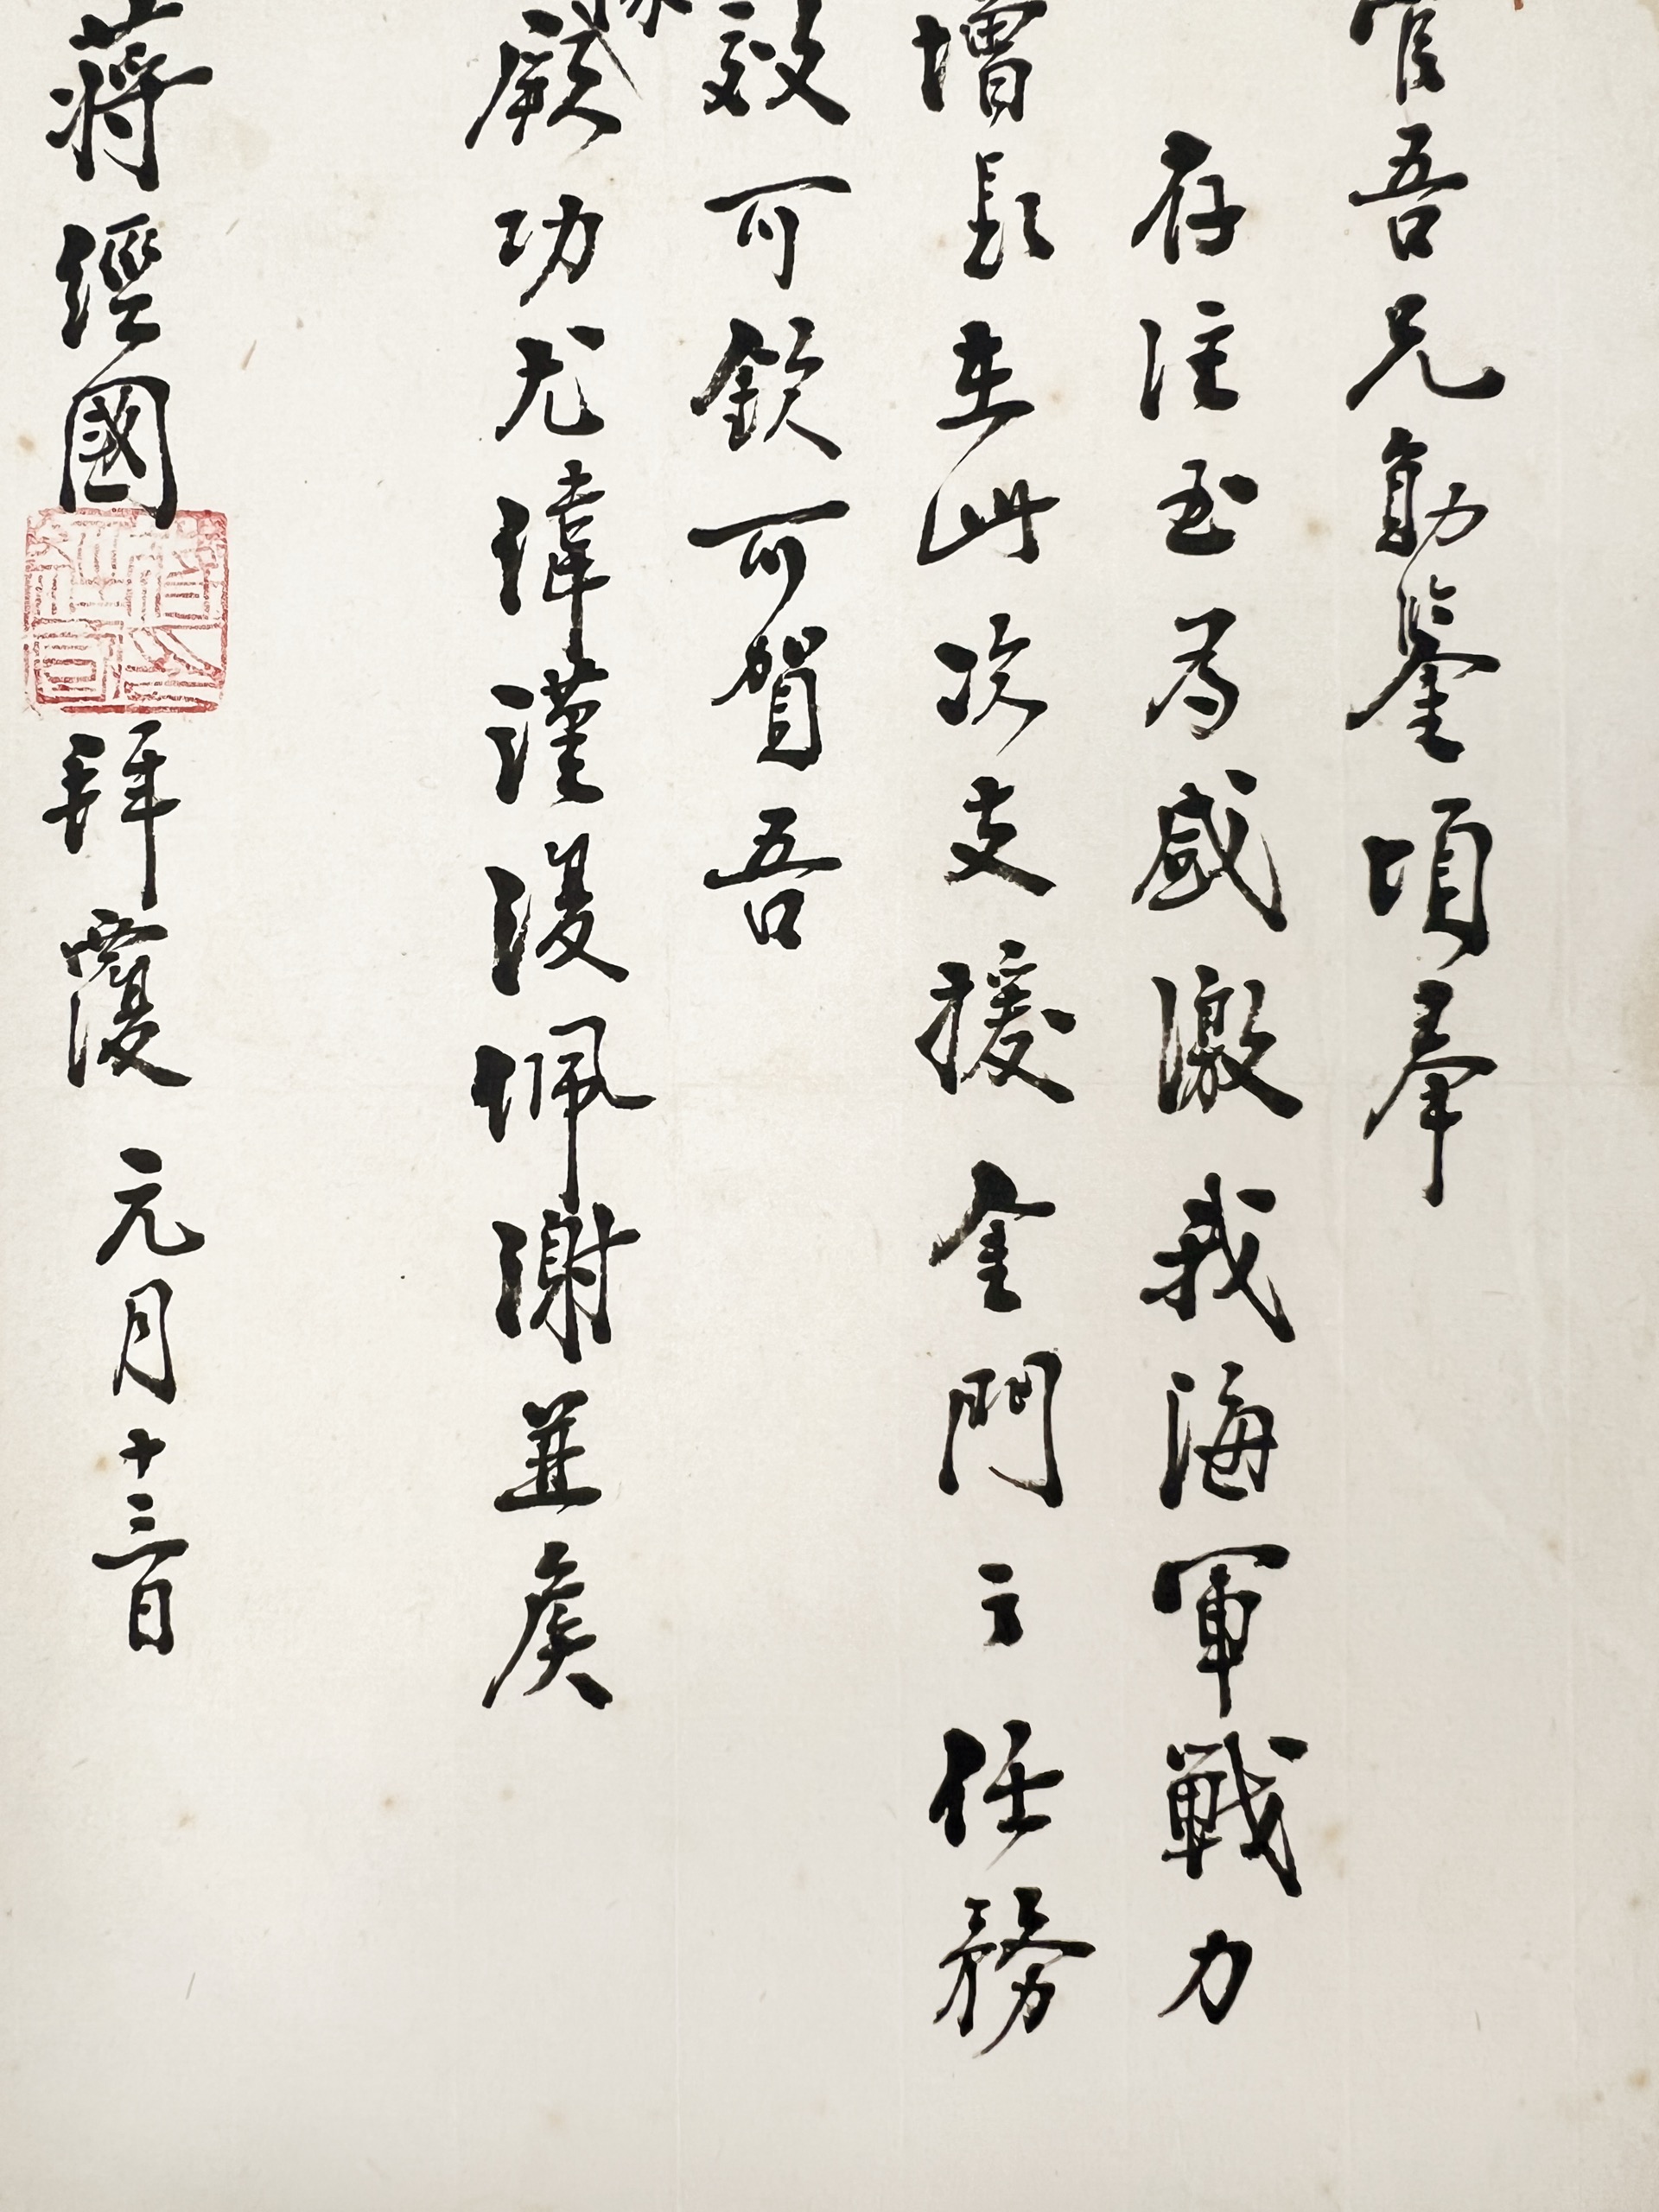 吾兄勛鑒頃奉
存注至為感激我海軍戰力
增長在此次支援金門之任務
效可欽可賀吾
厥功尤偉謹復佩謝並候
蔣經國拜覆 元月十三日